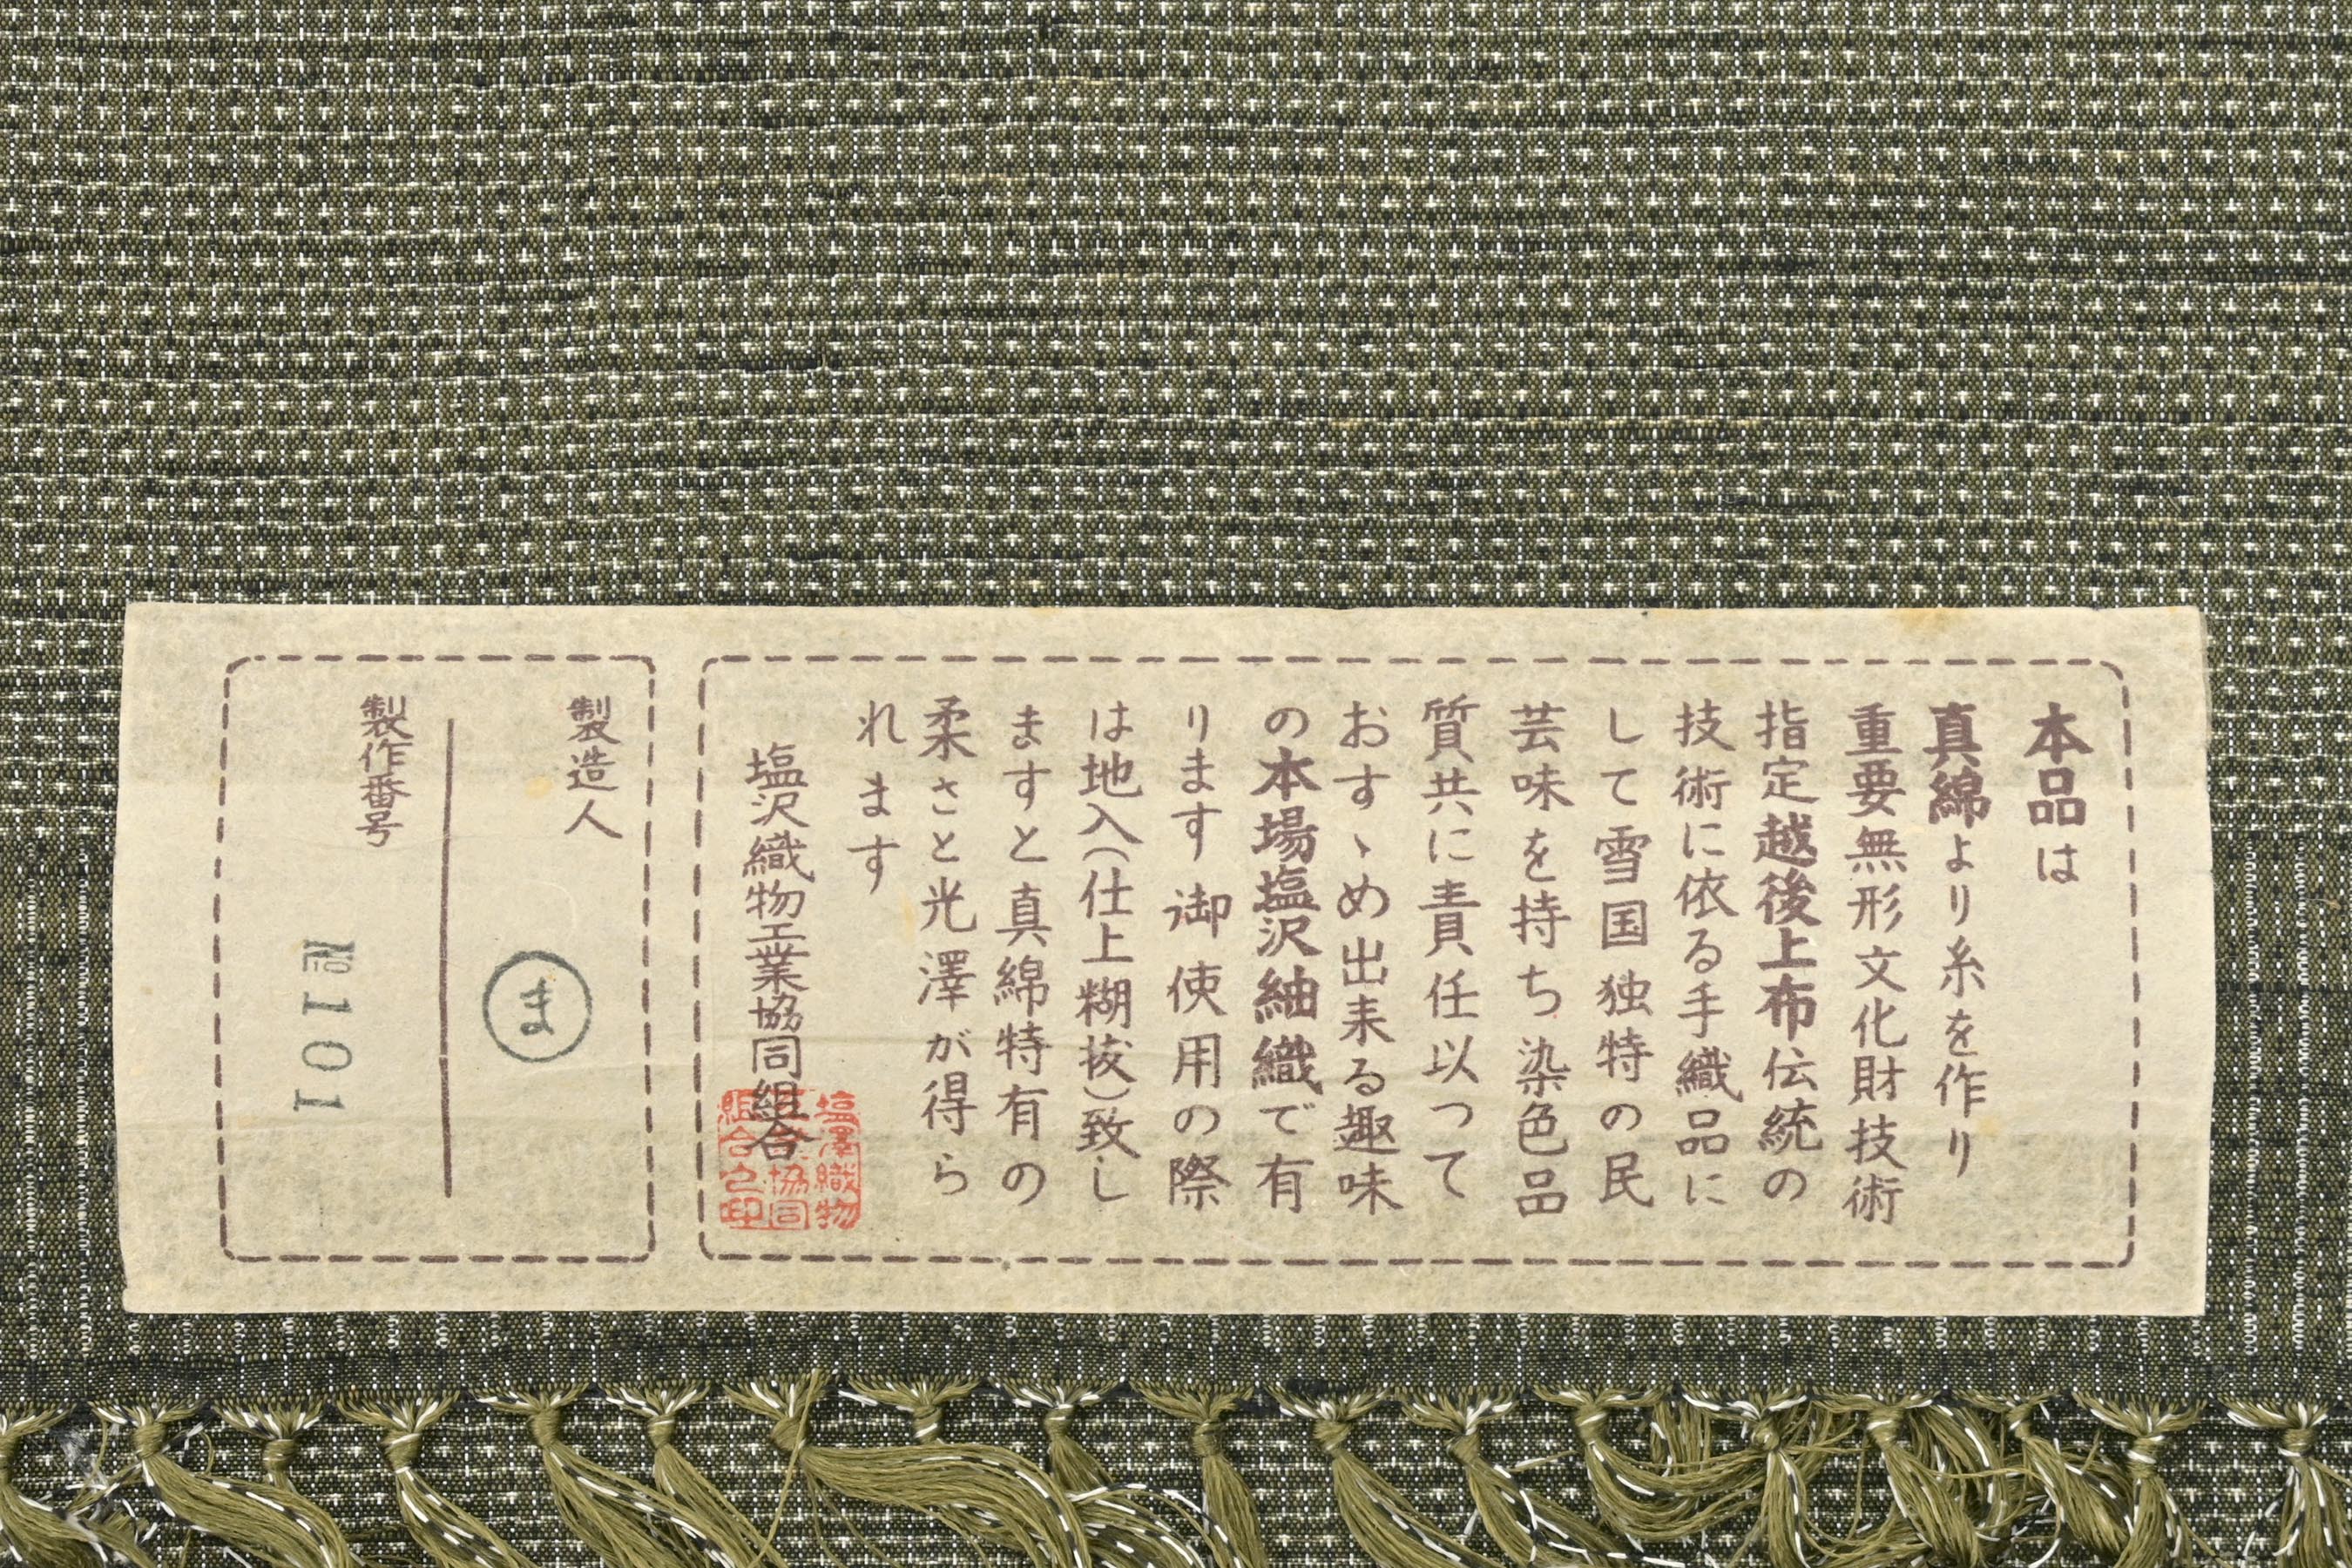 本品は
真綿より糸を作り
重要無形文化財技術
指定越後上布伝統の
技術に依る手織品に
して雪国独特の民
芸味を持ち染色品
質共に責任以って
おすゝめ出来る趣味
の本場塩沢紬織で有
ります御使用の際
は地入(仕上糊抜)致し
ますと真綿特有の
柔さと光澤が得ら
れます
塩沢織物工業協同組合
塩澤織物
工業協同
組合之印
製造人
ま
製作番号
№101